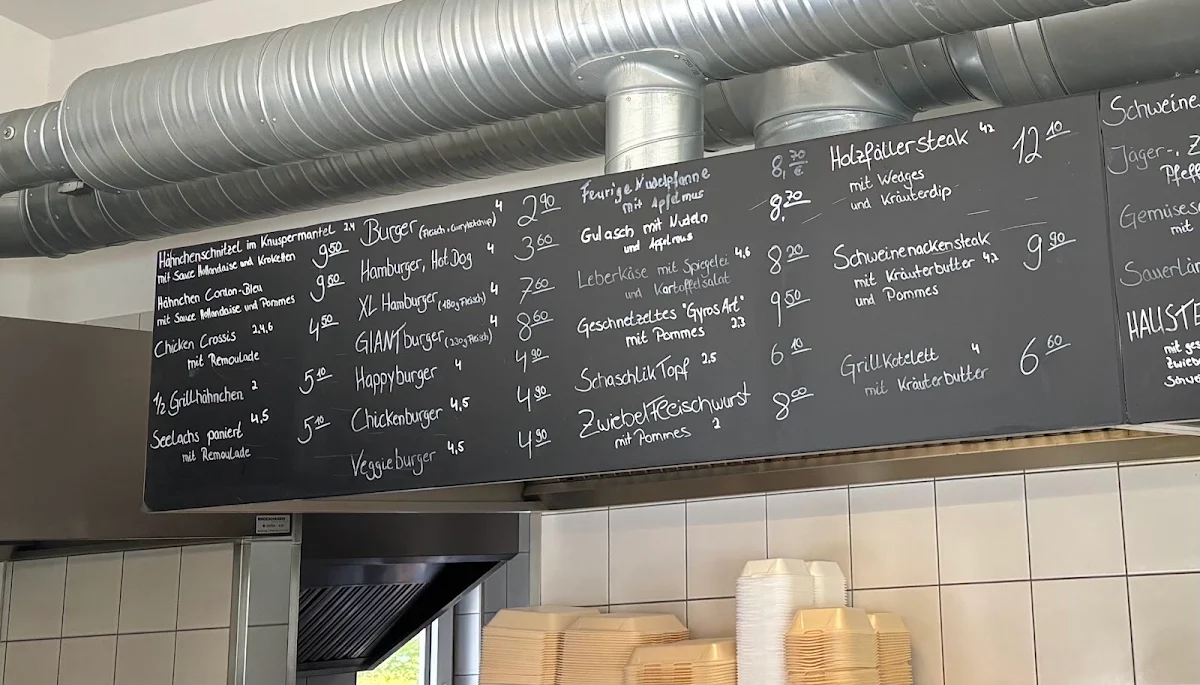 Hähnchenschnitzel im Knuspermantel 2,4
mit Sauce Hollandaise und Kroketten 9,50
Hähnchen Cordon-Bleu
mit Sauce Hollandaise und Pommes 9,50
Chicken Crossis 2,4,6 4,50
mit Remoulade
1/2 Grillhähnchen 2 5,10
Seelachs paniert 4,5 5,10
mit Remoulade
Burger (Fleisch, Curryketchup) 4 2,90
Hamburger, Hot Dog 4 3,60
XL Hamburger (180g Fleisch) 4 7,60
GIANTburger (230g Fleisch) 4 8,60
Happyburger 4 4,90
Chickenburger 4,5 4,90
Veggieburger 4,5 4,90
Feurige Nudelpfanne 8,70 €
mit Apfelmus
Gulasch mit Nudeln 8,70
und Apfelmus
Leberkäse mit Spiegelei 4,6 8,20
und Kartoffelsalat
Geschnetzeltes "Gyros Art" 9,50
mit Pommes 2,3
Schaschlik Topf 2,5 6,10
Zwiebelfleischwurst 8,00
mit Pommes 2
Holzfällersteak 4,2 12,10
mit Wedges
und Kräuterdip
Schweinenackensteak 9,90
mit Kräuterbutter 4,2
und Pommes
Grillkotelett 4 6,60
mit Kräuterbutter
Schweine
Jäger-, Z
Pfeff
Gemüses
mit
Sauerlän
HAUSTE
mit ges
Zwieb